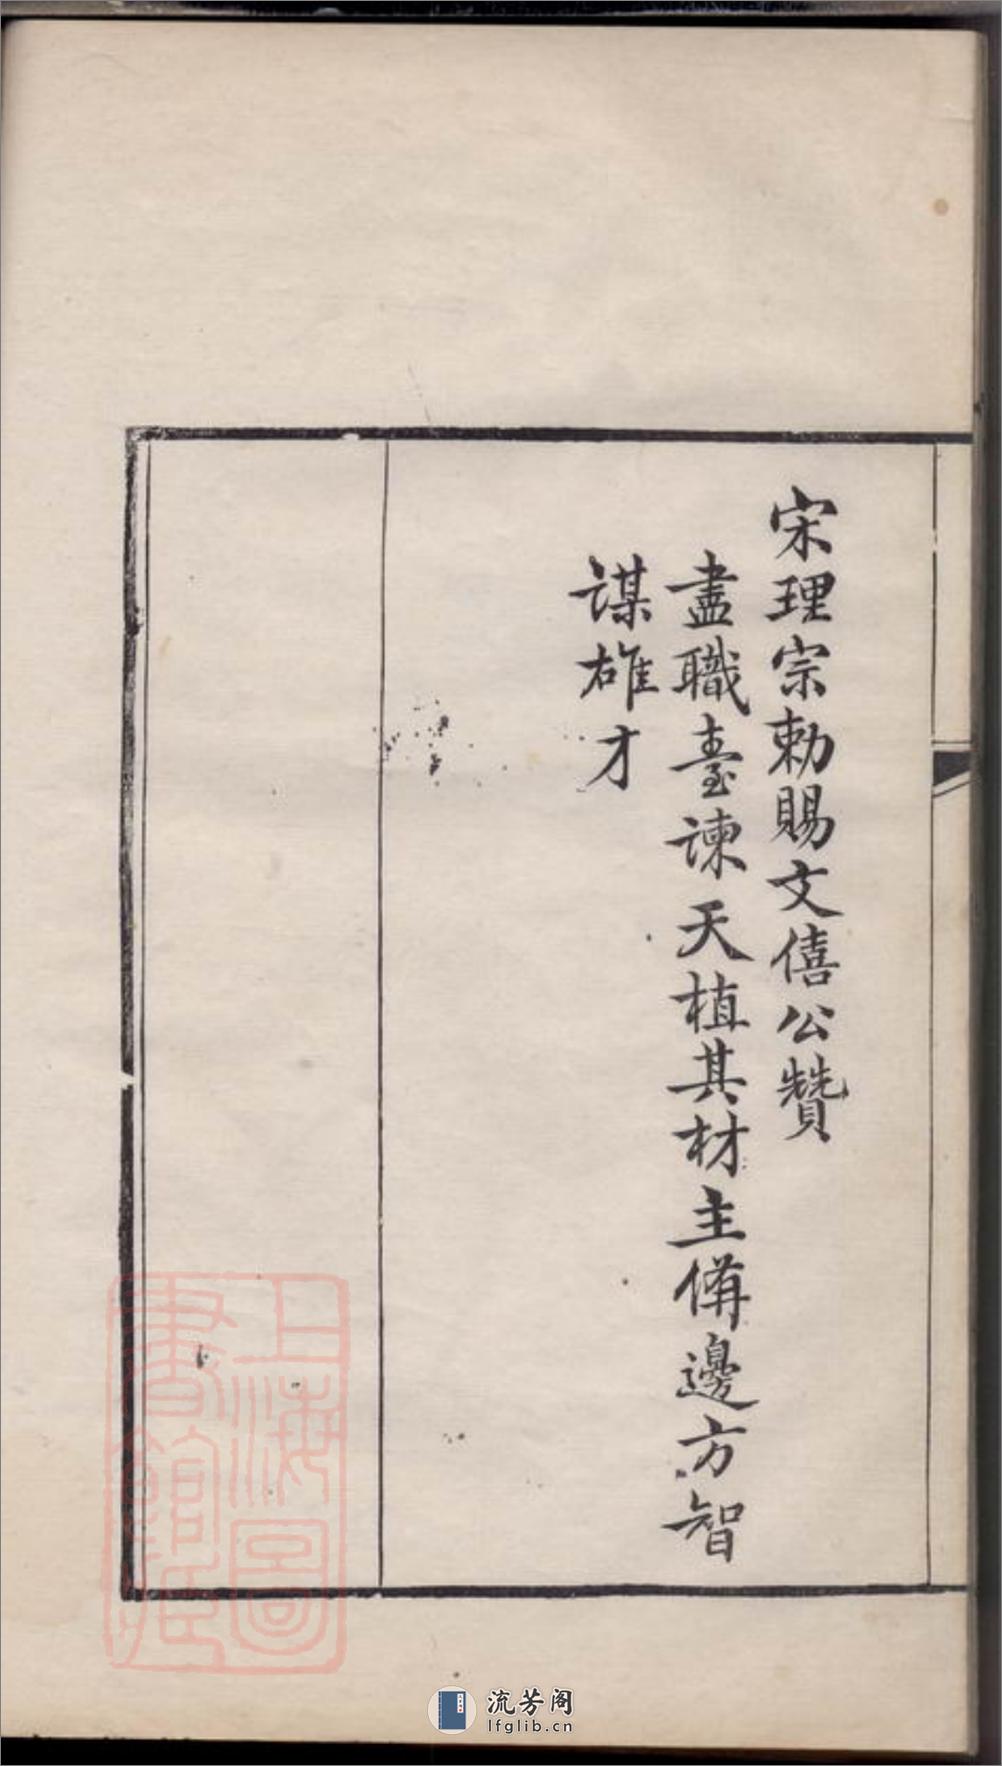 宋理宗勅賜文僖公贊
盡職臺諫天植其材主備邊方智
謀雄才
上海圖
書館藏
流芳阁
lfglib.cn